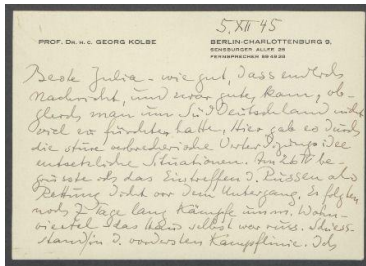 5. XII 45
PROF. DR. H. C. GEORG KOLBE
BERLIN-CHARLOTTENBURG 9,
SENSBURGER ALLEE 25
FERNSPRECHER
Beste Julia – wie gut, dass endlich
Nachricht, und zwar gute, kam, ob-
gleich man um Süddeutschland nicht
viel zu fürchten hatte. Hier gab es durch
die sture verbrecherische Verteidigungsidee
entsetzliche Situationen. Am
grüsste ich das Eintreffen d. Russen als
Rettung dicht vor dem Untergang. Es folgten
noch 7 Tage lang Kämpfe um uns. Wohn-
viertel. Das Haus selbst war russ.
stand/in d. vordersten Kampflinie. Ich